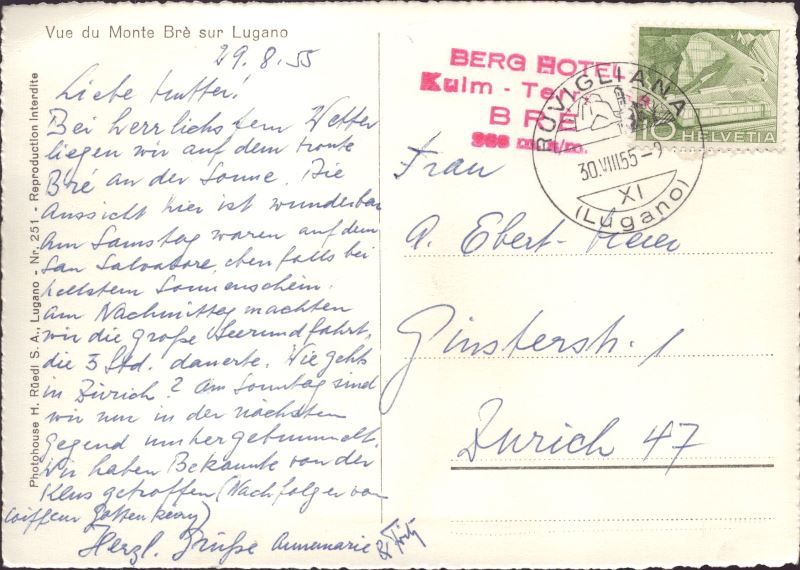 Vue du Monte Brè sur Lugano
29. 8. 55
Liebe Mutter!
Bei herrlichstem Wetter
liegen wir auf dem Monte
Bré an der Sonne. Die
Aussicht hier ist wunderbar
Am Samstag waren auf dem
San Salvatore, ebenfalls bei
hellstem Sonnenschein.
Am Nachmittag machten
wir die große Seerundfahrt,
die 3 Std. dauerte. Wie gehts
in Zürich? Am Sonntag sind
wir nur in der nächsten
Gegend umhergebummelt.
Wir haben Bekannte von der
Klus getroffen (Nachfolger von
Coiffeur
Herzl. Grüße Annemarie & Fritz
Photohouse H. Rüedi S. A., Lugano - Nr. 251 - Reproduction Interdite
BERG HOTEL
Kulm - Terr
BRÉ
960 m.ü.m.
RUVIGLIANA
30.VIII.55-9
XI
(Lugano)
10 HELVETIA
Frau
A. Ebert-Meier
Ginsterstr. 1
Zürich 47